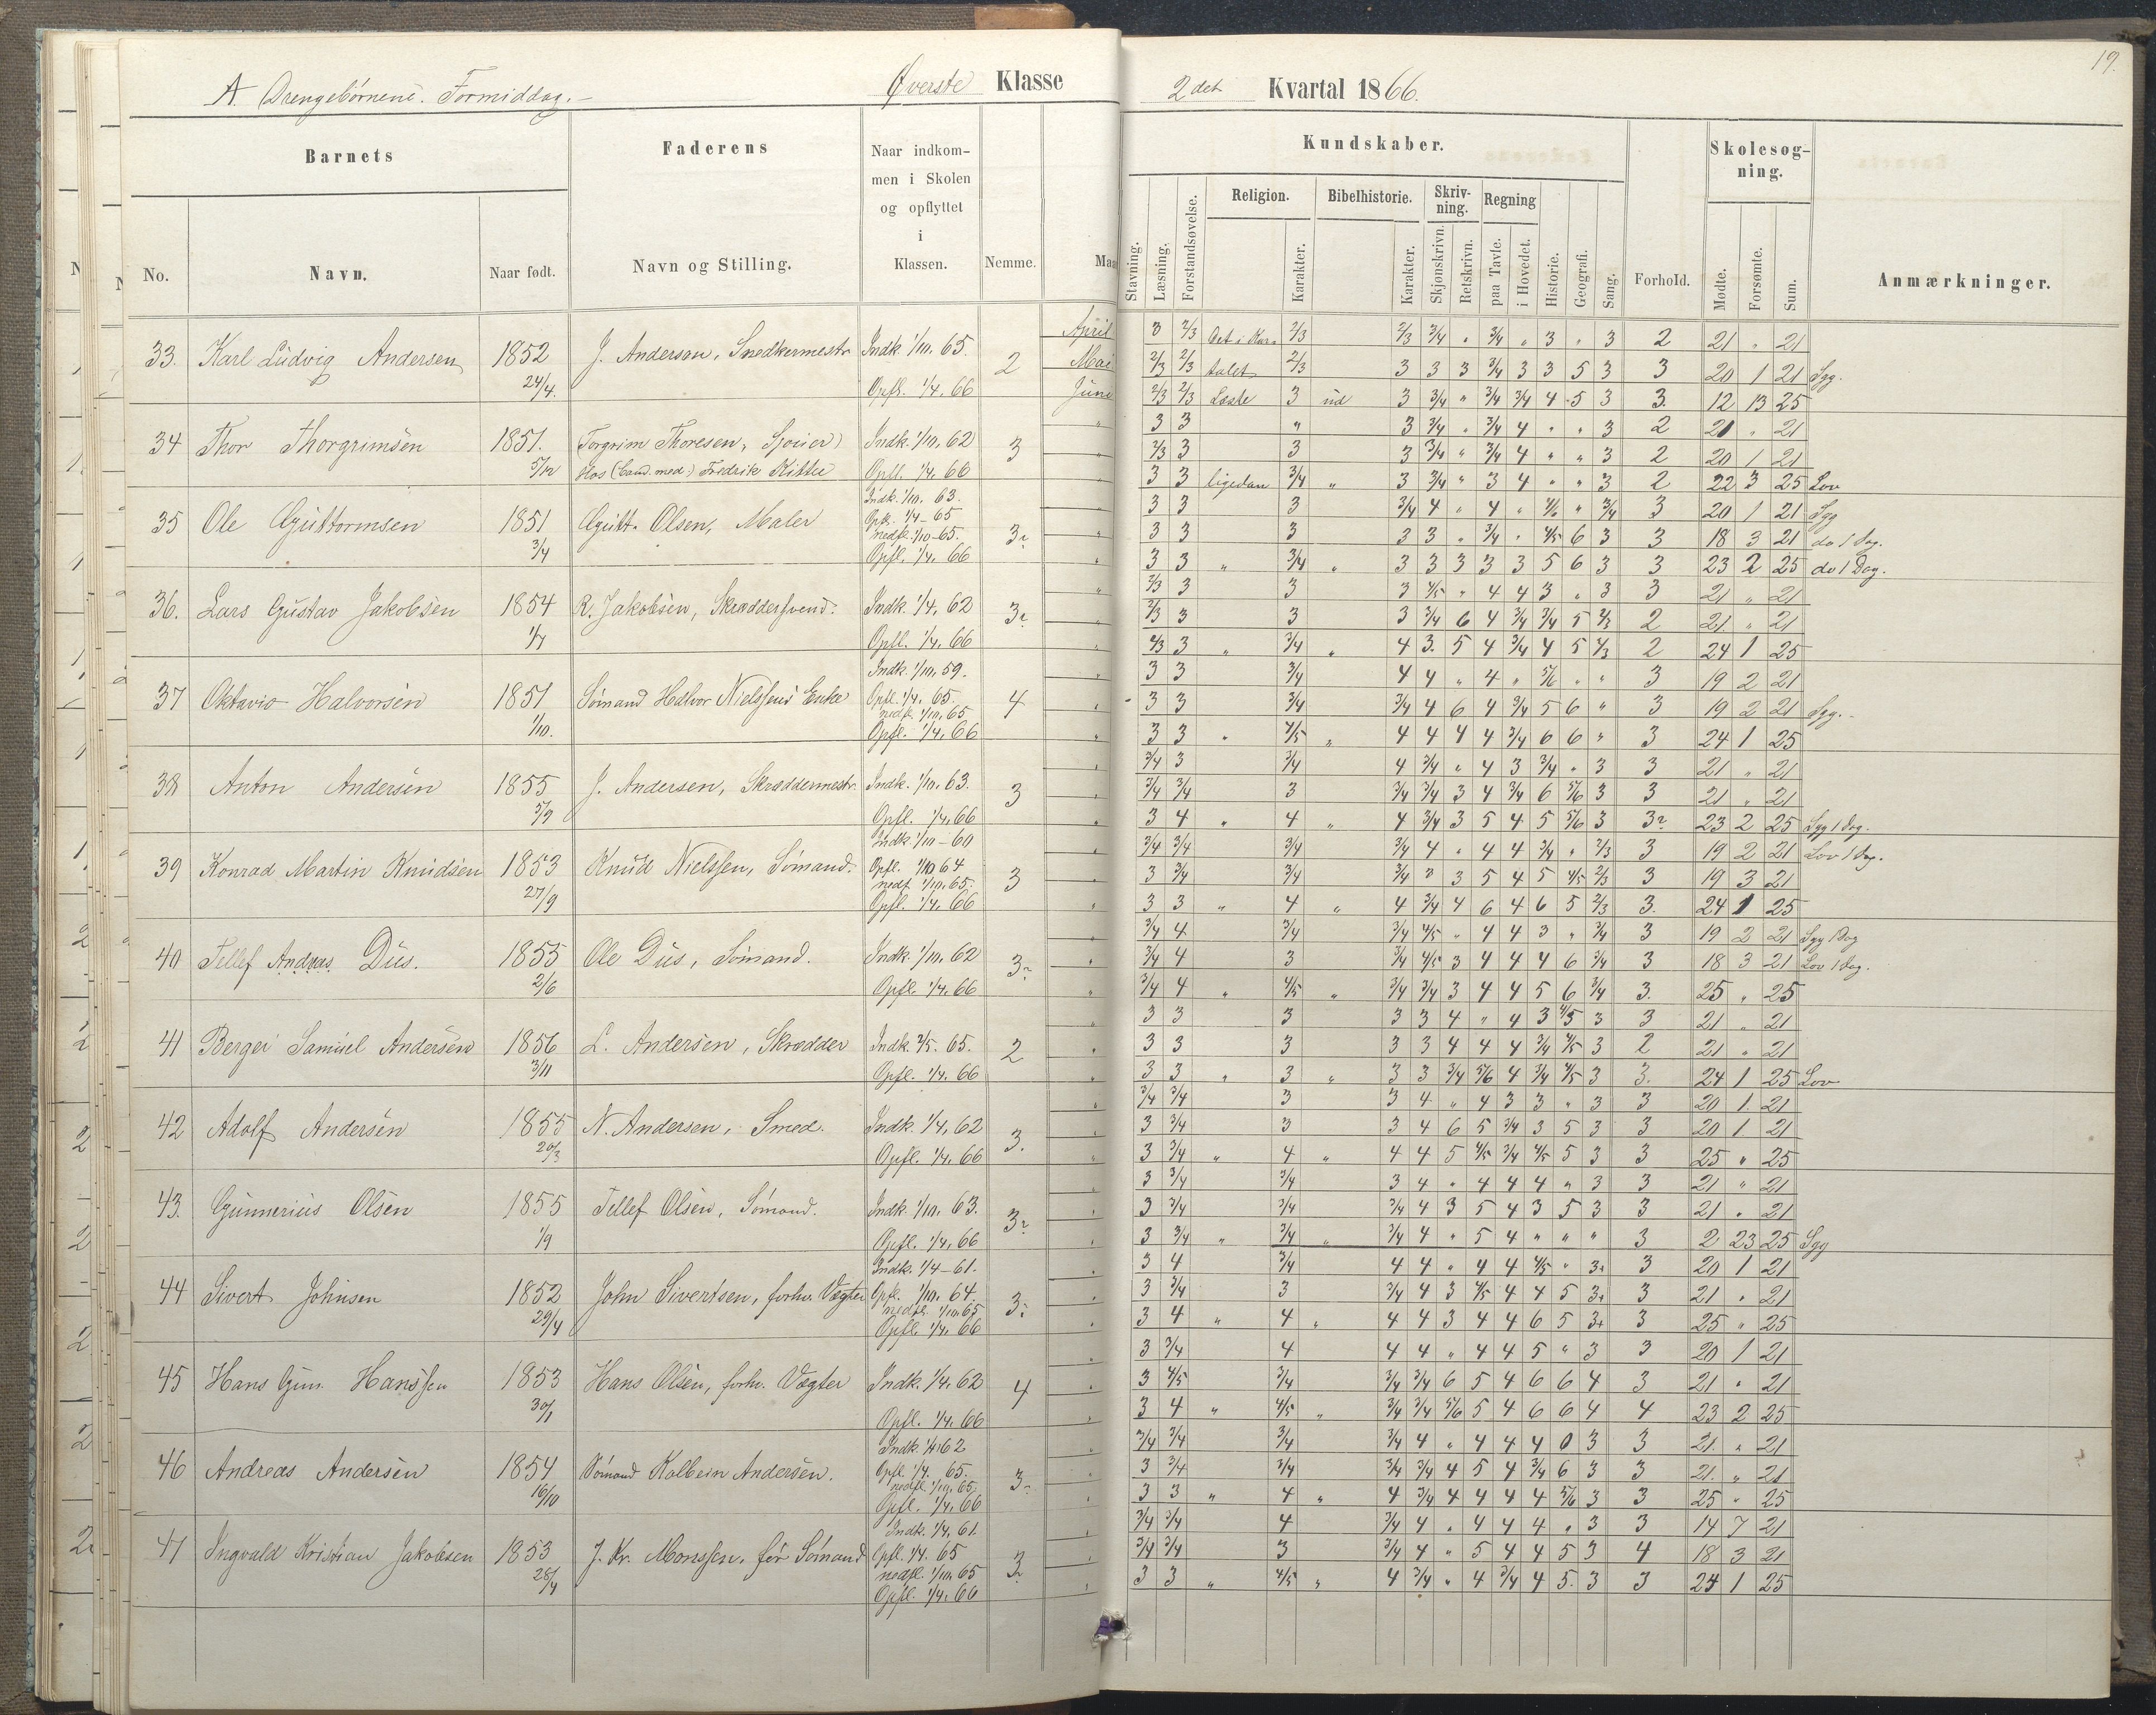 19.
A. Drengebørnene. Formiddag. –
Øverste Klasse
2det Kvartal 1866.
Barnets
Faderens
Naar indkom-
men i Skolen
og opflyttet
i
Klassen.
No.
Navn.
Naar født.
Navn og Stilling.
Nemme.
Kundskaber.
Skolesøg-
ning.
Religion.
Bibelhistorie.
Skriv-
ning.
Regning
Stavning.
Læsning.
Forstandsøvelse.
Karakter.
Karakter.
Skjønskrivn.
Retskrivn.
paa Tavle.
i Hovedet.
Historie.
Geografi.
Sang.
Forhold.
Mødte.
Forsømte.
Sum.
Anmærkninger.
33. Karl Ludvig Andersen 1852 24/4. J. Anderson, Snedkermestr Indk. 1/10. 65. Opfl. 1/4. 66 2
April 3 2/3 2/3 2/3 3/4 " 3/4 " 3 " 3 2 21 " 21
Mai 2/3 2/3 2/3 3 3 3 3/4 3 3 5 3 3 20 1 21 Syg.
Juni 2/3 2/3 Læste 3 ud 3 3/4 " 3/4 3/4 4 5 3 3. 12 13 25
34 Thor Thorgrimsen 1851. 5/12 Torgrim Thoresen, Hos (Cand. med.) Fredrik Indk. 1/10. 62 Opfl. 1/4. 66 3
3 3 " 3 3/4 " 3/4 4 " " 3 2 21 " 21
2/3 3 3 3 3/4 " 3/4 4 " " 3 2 20 1 21
3 3 ligedan 3/4 " 3 3/4 " 3 4 " " 3 2 22 3 25 Lov
35 Ole Guttormsen 1851 3/4 Gutt. Olsen, Maler Indk. 1/10. 63. Opfl. 1/4 – 65 nedfl. 1/10 – 65. Opfl. 1/4. 66 3
3 3 3 3/4 4 " 4 " " 3/4 3 20 1 21 Syg
3 3 3 3 3 " 3/4 " 4/5 6 3 3 18 3 21 do 1 Dag.
3 3 " 3/4 " 3 3 3 3 3 5 6 3 3 23 2 25 do 1 Dag.
36. Lars Gustav Jakobsen 1854 R. Jakobsen, Skræddersvend. Indk. 1/4. 62 Opfl. 1/4. 66 3
2/3 3 3 3 4/5 " 4 4 3 " 3 3 21 " 21
2/3 3 3 3 3/4 6 4 3/4 3/4 5 2/3 2 21. " 21
2/3 3 " 3/4 " 4 3. 5 4 3/4 4 5 2/3 2 24 1 25
37 Oktavio Halvorsen 1851 1/10. Sømand Halvor Nielssens Enke Indk. 1/10. 59. Opfl. 1/4. 65. nedfl. 1/10. 65 Opfl. 1/4. 66 4
3 3 3/4 4 4 " 4 " 5/6 " " 3 19 2 21
3 3 3/4 3/4 4 6 4 3/4 5 6 " 3 19 2 21 Syg. –
3 3 " 4/5 " 4 4 4 4 3/4 6 6 " 3 24 1 25
38 Anton Andersen 1855 5/9 J. Andersen, Skræddermestr. Indk. 1/10. 63. Opfl. 1/4. 66 3
3/4 3 3/4 4 3/4 " 4 3 3/4 " 3 3 21 " 21
3/4 3/4 3 3/4 3/4 3 4 3/4 6 5/6 3 3 21 " 21
3 4 " 4 " 4 3/4 3 5 4 5 5/6 3 3 23 2 25 Syg 1 Dag.
39 Konrad Martin Knudsen 1853 27/9 Knud Nielssen, Sømand. Indk. 1/10 – 60 Opfl. 1/10 64 nedf. 1/10. 65. Opfl. 1/4. 66 3
3/4 3/4 3/4 3/4 4 " 4 4 3/4 " 2/3 3 19 2 21 Lov 1 Dag.
3 3/4 3/4 3/4 3 3 5 4 5 4/5 2/3 3 19 3 21
3 3 " 4 " 4 3/4 4 6 4 6 5 2/3 3. 24 1 25
40 Tellef Andreas Dus. 1855 2/6 Ole Dus, Sømand. Indk. 1/10. 62 Opfl. 1/4. 66 3
3/4 4 3/4 3/4 4/5 " 4 4 3 " 3/4 3 19 2 21 Syg 1 Dag
3/4 4 3 3/4 4/5 3 4 4 4 6 3/4 3 18 3 21 Lov 1 Dag.
3/4 4 " 4/5 " 3/4 3/4 3 4 4 5 6 3/4 3. 25 " 25
41 Berger Samuel Andersen 1856 3/11 L. Andersen, Skrædder Indk. 2/5. 65. Opfl. 1/4. 66 2
3 3 3 3 3 4 " 4 3 4/5 3 3 21 " 21
3 3 3 3 3 4 4 4 3/4 4/5 3 2 21 " 21
3 3 " 3 " 3 3 3/4 5/6 4 3/4 4/5 3 3. 24 1 25 Lov
42 Adolf Andersen 1855 20/3 N. Andersen, Smed. Indk. 1/4. 62 Opfl. 1/4. 66 3.
3/4 3/4 3 3 4 " 4 3 3 " 3 3 20 1. 21
3 3/4 3 3 4 6 5 3/4 3 5 3 3 20 1. 21
3 3/4 " 4 " 4 4 5 4/5 3/4 4/5 5 3 3 25 " 25
43. Gunnerius Olsen 1855 1/9 Tellef Olsen, Sømand. Indk. 1/10. 63. Opfl. 1/4. 66 3
3 3/4 3/4 3 4 " 4 4 4 " 3 3 21 " 21
3 3/4 3/4 3/4 4 3 5 4 3 5 3 3 21 " 21
3 3/4 " 3/4 " 3/4 4 " 5 4 " " " 3 2 23 25 Syg
44 Sivert Johnsen 1852 29/4 John Sivertsen, forhv. Vægter Indk. 1/4 – 61. Opfl. 1/10. 64. nedfl. 1/10. 65 Opfl. 1/4. 66 3
3 4 3/4 4 4 " 4 4 4/5 " 3+ 3 20 1 21
3 3/4 3 3/4 4 3 4/5 4 4 5 3+ 3 21 " 21
3 4 " 4 " 4 4 3 4 4 6 5 3+ 3 25 " 25
45 Hans Gun. Hanssen 1853 30/1 Hans Olsen, forhv. Vægter Indk. 1/4. 62 Opfl. 1/4. 66 4
3 3/4 4 4 4 " 4 4 5 " 3 3 20 1 21
3 4/5 3/4 3/4 3/4 6 5 4 6 6 4 3 21 " 21
3 4 " 4/5 " 3/4 3/4 5/6 5 4 6 6 4 4 23 2 25
46 Andreas Andersen 1854 16/10 Sømand Kolbein Andersen. Indk. 1/4 62 Opfl. 1/4. 65. nedfl. 1/10. 65. Opfl. 1/4. 66 3
3/4 3/4 3/4 3/4 4 " 4 4 4 0 3 3 21. " 21
3 3/4 3/4 3/4 3/4 4 5 4 3/4 6 3 3 21. " 21
3 3 " 4 " 4 3/4 4 4 4 4 5/6 3 3 25 " 25
47 Ingvald Kristian Jakobsen 1853 28/4 J. Kr. Monssen, før Sømand Indk. 1/4. 61. Opfl. 1/4. 65 nedfl. 1/10. 65 Opfl. 1/4. 66 3
3/4 3/4 4 3/4 4 " 4 4 4 " 3 3 14 7 21
3/4 3/4 3 3/4 4 " 5 4 4 5 3 4 18 3 21
3 3 " 4/5 " 4 3/4 " 4 3/4 4 5. 3 3 24 1 25